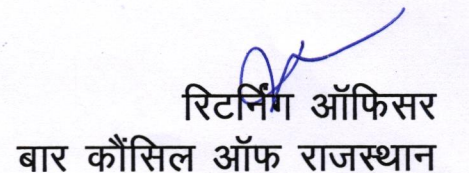 रिटर्निंग ऑफिसर
बार कौंसिल ऑफ राजस्थान